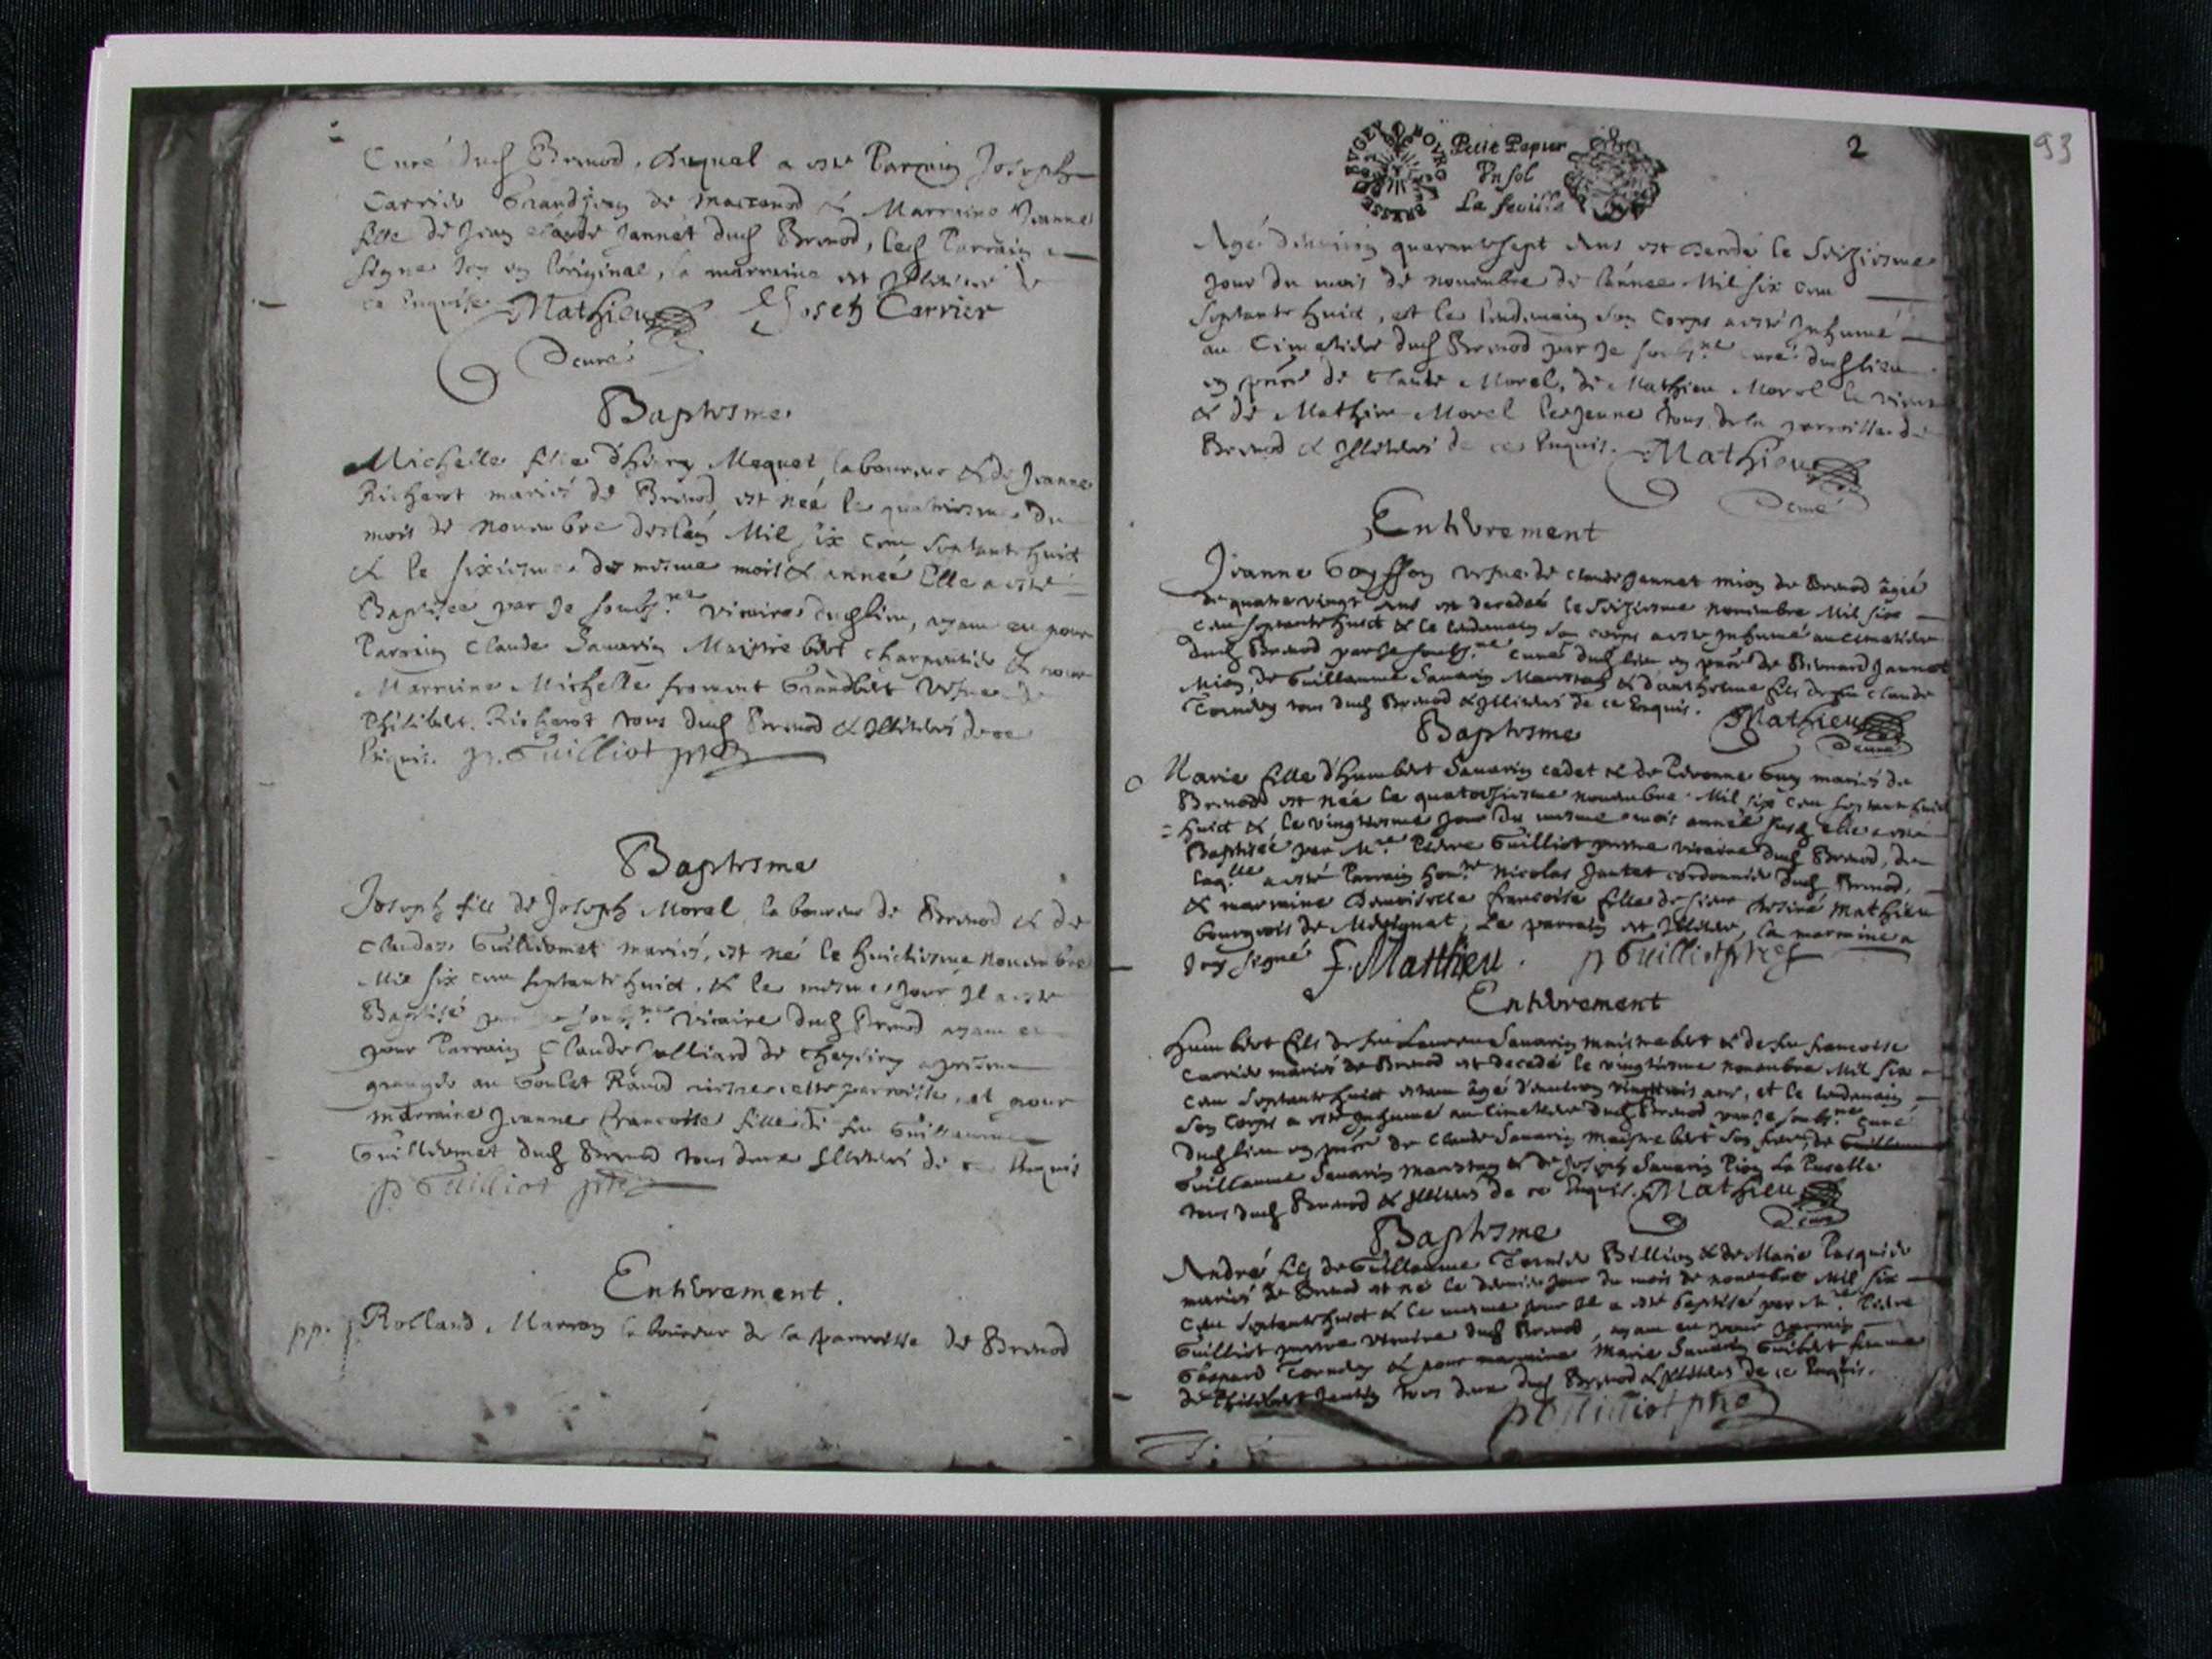 Curé dud Brenod, duquel a esté Parrain Joseph
Carrier Grandjean de Macconod & Marraine Jeanne
fille de Jean claude Jannet dud Brenod, led Parrain a
signé icy en l'original, la marraine est illiterée de
ce Enquise. Mathieu Joseth Carrier
Curé
Baptesme
Michelle fille d'Henry Moquet laboureur & de Jeanne
Richerot mariés de Brenod, est née le quatriesme du
mois de novembre de l'an Mil six cent septante huict
& le sixiesme du mesme mois & année Elle a esté
Baptisée par Je soubs.né vicaire dud lieu, ayant eu pour
Parrain Claude Savarin Maistre bert charpentier & pour
Marraine Michelle froment Grandbert vefve de
Philibert Richerot tous dud Brenod & Illiterés de ce
Enquis. p. Guilliot ptre
Baptesme
Joseph fils de Joseph Morel laboureur de Brenod & de
Claudaz Guillermet mariés, est né le huictiesme novembre
Mil six cent septante huict, & le mesme jour Il a esté
Baptisé par Je soubs.né vicaire dud Brenod ayant eu
pour Parrain Claude Julliard de a present
granger au Goulet Rand riere cette parroisse, et pour
marraine Jeanne Francoise fille de feu Guillaume
Guillermet dud Brenod tous deux Illiterés de ce Enquis
p Guilliot ptre
Enterrement.
pp. Rolland Marron laboureur de la parroisse de Brenod
93
2
BVGEY BRESSE
Petit Papier
Un sol
La feuille
Agé d'environ quarante sept Ans, est decedé le Seiziesme
Jour du mois de novembre de l'année Mil six cent
septante huict, et le lendemain son Corps a esté Inhumé
au Cimetiere dud Brenod par Je soubs.né curé dud lieu
en pnce de Claude Morel, de Mathieu Morel le vieux
& de Mathieu Morel le Jeune tous de la parroisse de
Brenod & Illiterés de ce Enquis. Mathieu
Curé
Enterrement
Jeanne Goyffon vefve de claude Jannet mion de Brenod âgée
de quatre vingt Ans est decedée le Seiziesme novembre Mil six
cent septante huict & le lendemain son corps a esté Inhumé au cimetiere
dud Brenod par Je soubs.né curé dud lieu en pnce de Bernard Jannet
Mion, de Guillaume Savarin & d'anthelme fils de feu Claude
Tournier tous dud Brenod & Illiterés de ce Enquis. Mathieu
Curé
Baptesme
Marie fille d'Humbert Savarin cadet & de Pernonne Guy mariés de
Brenod est née le quatorziesme novembre Mil six cent septante huict
huict & le vingtiesme jour du mesme mois année susd elle a esté
Baptisée par M.re Pierre Guilliot prestre vicaire dud Brenod, de
laq.lle a esté Parrain hon.ble Nicolas Jantet cordonnier dud Brenod,
& marraine Damoiselle francoise fille de sieur desiré Mathieu
bourgeois de Merignat, Le parrain est Illiteré, la marraine a
Icy signé F. Matthieu. p Guilliot ptre
Enterrement
Humbert fils de feu Laurent Savarin maistre bert & de feu francoise
Carrier mariés de Brenod est decedé le vingtiesme novembre Mil six
cent septante huict estant âgé d'environ vingt trois ans, et le lendemain
son Corps a esté Inhumé au Cimetiere dud Brenod par Je soubs.né curé
dud lieu en pnce de Claude Savarin maistre bert son frere, de Guillaume
Guillaume Savarin & de Joseph Savarin Pion La Pucelle
tous dud Brenod & Illiterés de ce Enquis. Mathieu
Curé
Baptesme
André fils de Guillaume Tournier Billion & de Marie Pasquier
mariés de Brenod est né le dernier jour du mois de novembre Mil six
cent septante huict & le mesme jour Il a esté baptisé par M.re Pierre
Guilliot prestre vicaire dud Brenod, ayant eu pour parrain
Gaspard Tournier & pour marraine Marie Savarin Guibert femme
de Philibert Jantet tous deux dud Brenod & Illiterés de ce Enquis.
p Guilliot ptre